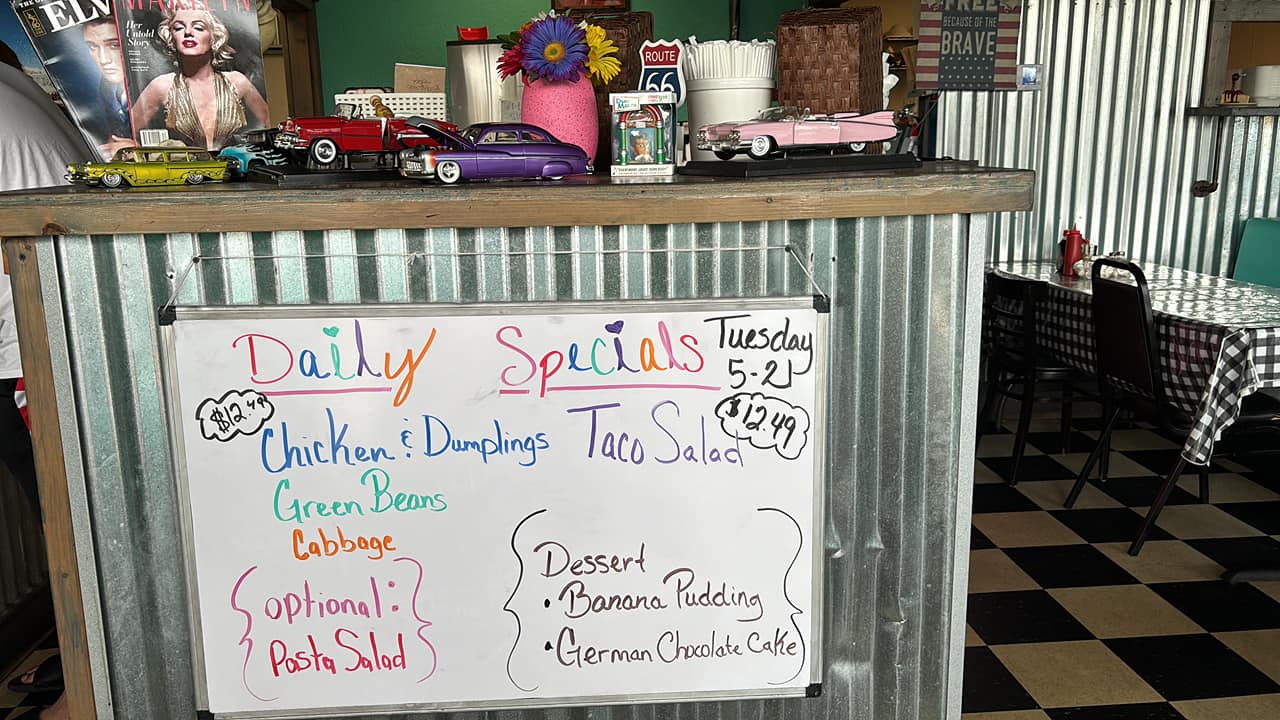 ELV
MARILYN
Her
Untold
Story
ROUTE
66
FREE
BECAUSE OF THE
BRAVE
Daily Specials
Tuesday
5-21
$12.49
$12.49
Chicken & Dumplings
Taco Salad
Green Beans
Cabbage
optional:
Pasta Salad
Dessert
• Banana Pudding
• German Chocolate Cake